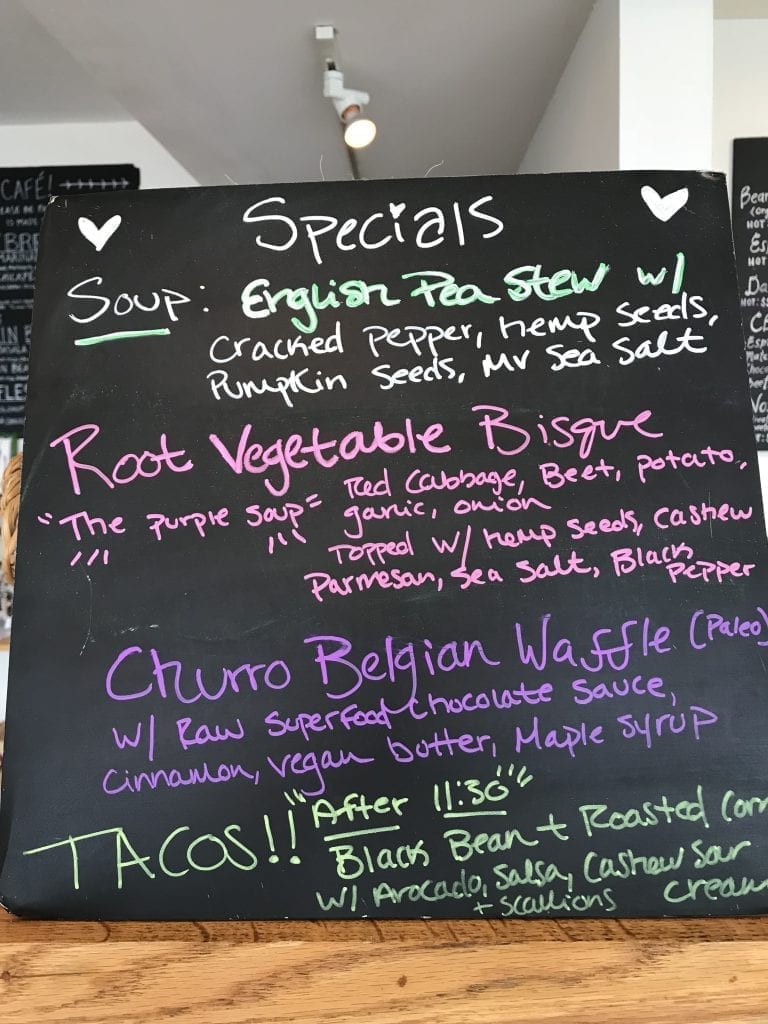 Specials
Soup: English Pea Stew w/
Cracked Pepper, Hemp Seeds,
Pumpkin Seeds, Mv Sea Salt
Root Vegetable Bisque
"The purple soup" Red Cabbage, Beet, potato,
garlic, onion
Topped w/ Hemp seeds, Cashew
Parmesan, Sea Salt, Black
Pepper
Churro Belgian Waffle (Paleo)
w/ Raw Superfood Chocolate Sauce,
Cinnamon, vegan butter, Maple syrup
TACOS!! "After 11:30"
Black Bean + Roasted Corn
w/ Avocado, Salsa, Cashew Sour
+ scallions Cream
CAFÉ!